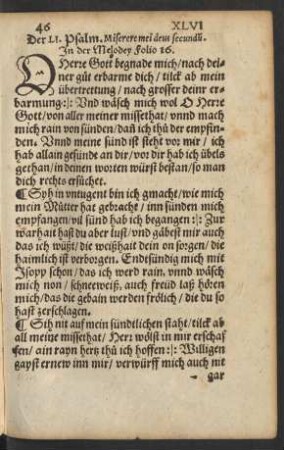 46 XLVI
Der LI. Psalm. Miserere mei deus secundū.
In der Melodey Folio 16.
O Herre Gott begnade mich/ nach dei-
ner güt erbarme dich/ tilck ab mein
übertrettung/ nach grosser deinr er-
barmung:|: Vnd wäsch mich wol O Herre
Gott/ von aller meiner missethat/ vnnd mach
mich rain von sünden/ dañ ich thů der empfin-
den. Vnnd meine sünd ist steht vor mir/ ich
hab allain gesünde an dir/ vor dir hab ich übels
gethan/ in deinen worten würst bestan/ so man
dich rechts ersüchet.
¶ Syh in vntugent bin ich gmacht/ wie mich
mein Můtter hat gebracht/ inn sünden mich
empfangen/ vil sünd hab ich begangen :|: Zur
warhait hast du aber lust/ vnd gäbest mir auch
das ich wüßt/ die weißhait dein on sorgen/ die
haimlich ist verborgen. Endtsündig mich mit
Isopp schon/ das ich werd rain. vnnd wäsch
mich non/ schneeweiß, auch freud laß hören
mich/ das die gebain werden frölich/ die du so
hast zerschlagen.
¶ Sih nit auf mein sündtlichen staht/ tilck ab
all meine missethat/ Herr wölst in mir erschaf
fen/ ain rayn hertz thů ich hoffen :|: Willigen
gayst ernew inn mir/ verwürff mich auch nit
gar